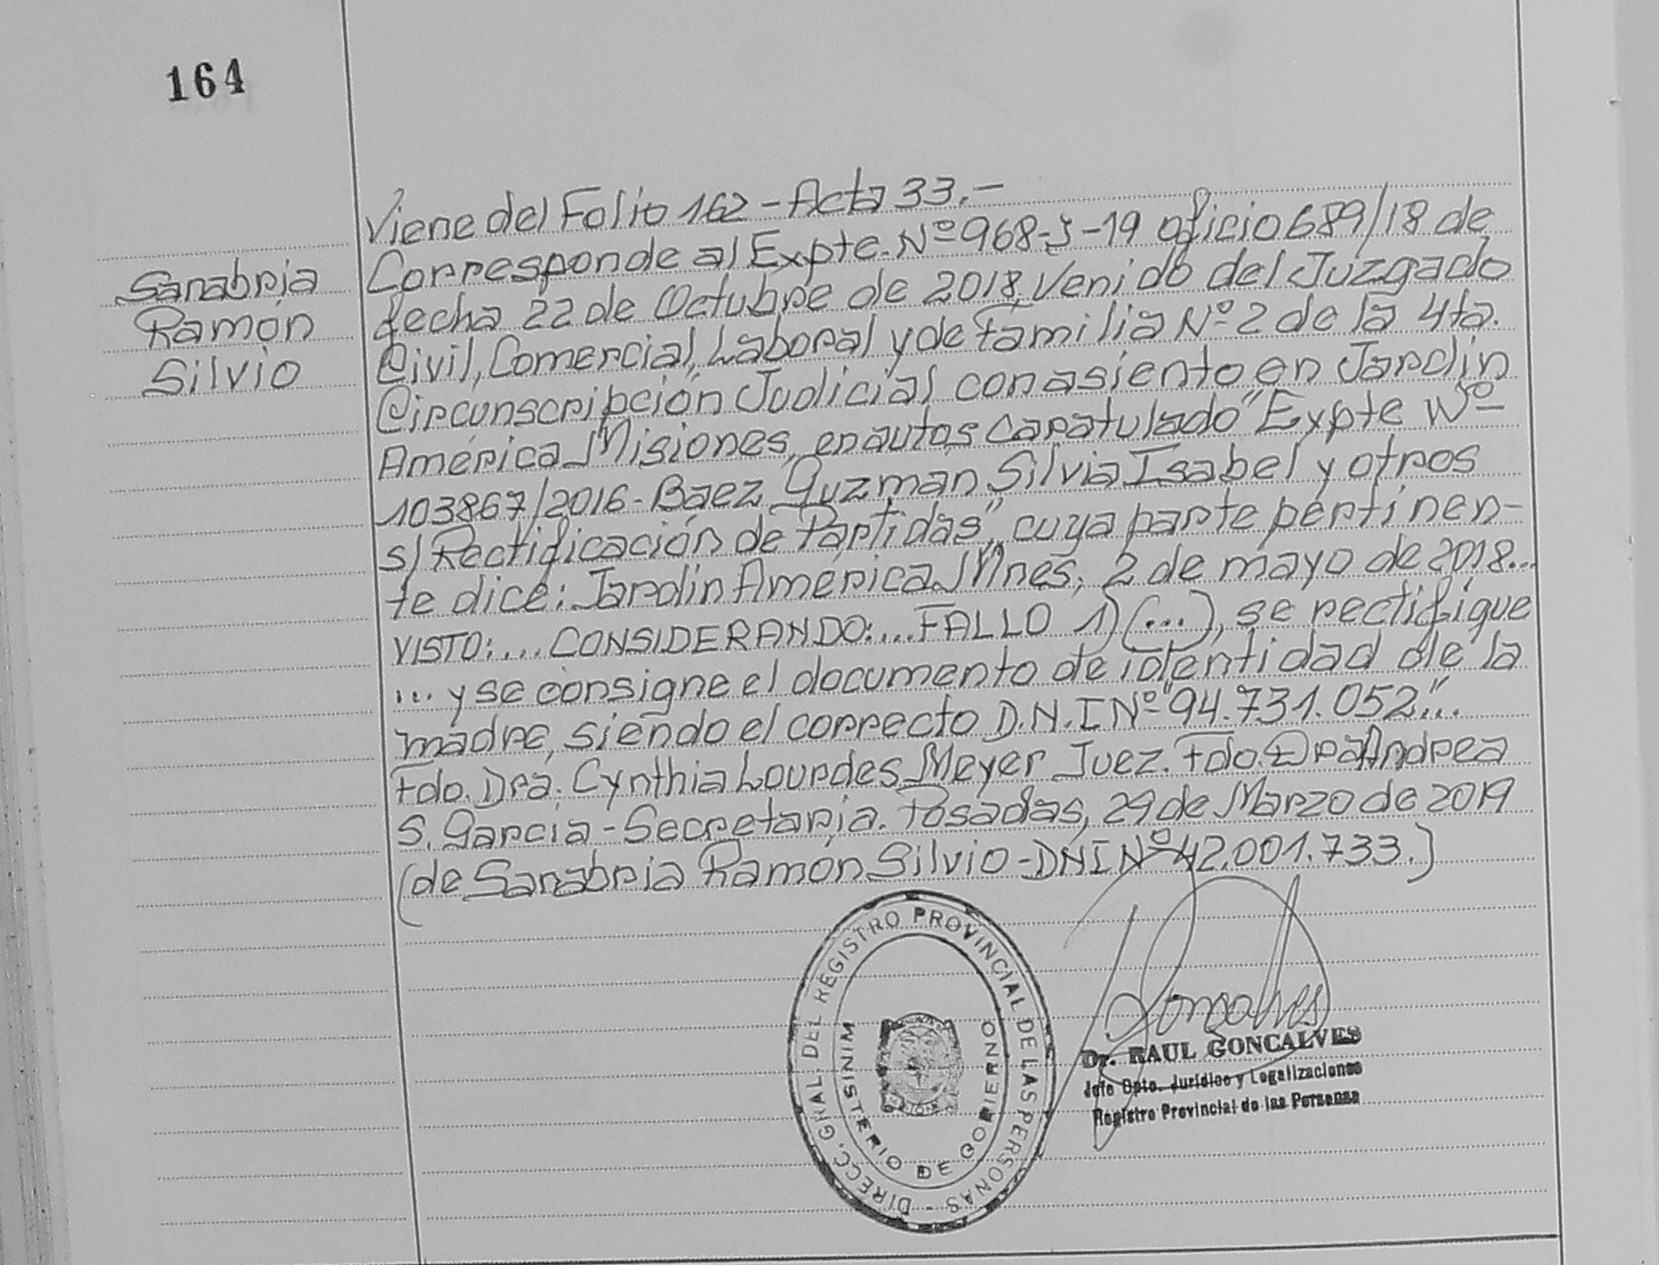 164
Sanabria
Ramón
Silvio
Viene del Folio 162 - Acta 33.-
Corresponde al Expte. Nº 968-J-19 oficio 689/18 de
fecha 22 de Octubre de 2018, venido del Juzgado
Civil, Comercial, Laboral y de Familia Nº 2 de la 4ta.
Circunscripción Judicial con asiento en Jardin
América Misiones, en autos capatulado "Expte Nº
103867/2016 - Baez Guzman Silvia Isabel y otros
s/ Rectificación de Partidas", cuya parte pertinen-
te dice: Jardin América Mnes, 2 de mayo de 2018...
VISTO:... CONSIDERANDO:... FALLO 1) (...), se rectifique
... y se consigne el documento de identidad de la
madre, siendo el correcto D.N.I Nº "94.731.052"...
Fdo. Dra. Cynthia Lourdes Meyer Juez. Fdo. Dra Andrea
S. Garcia - Secretaria. Posadas, 29 de Marzo de 2019
(de Sanabria Ramón Silvio - DNI Nº 42.001.733.)
DIRECC. GRAL. DEL REGISTRO PROVINCIAL DE LAS PERSONAS -
MINISTERIO DE GOBIERNO
Goncalves
Dr. RAUL GONCALVES
Jefe Dpto. Jurídico y Legalizaciones
Registro Provincial de las Personas